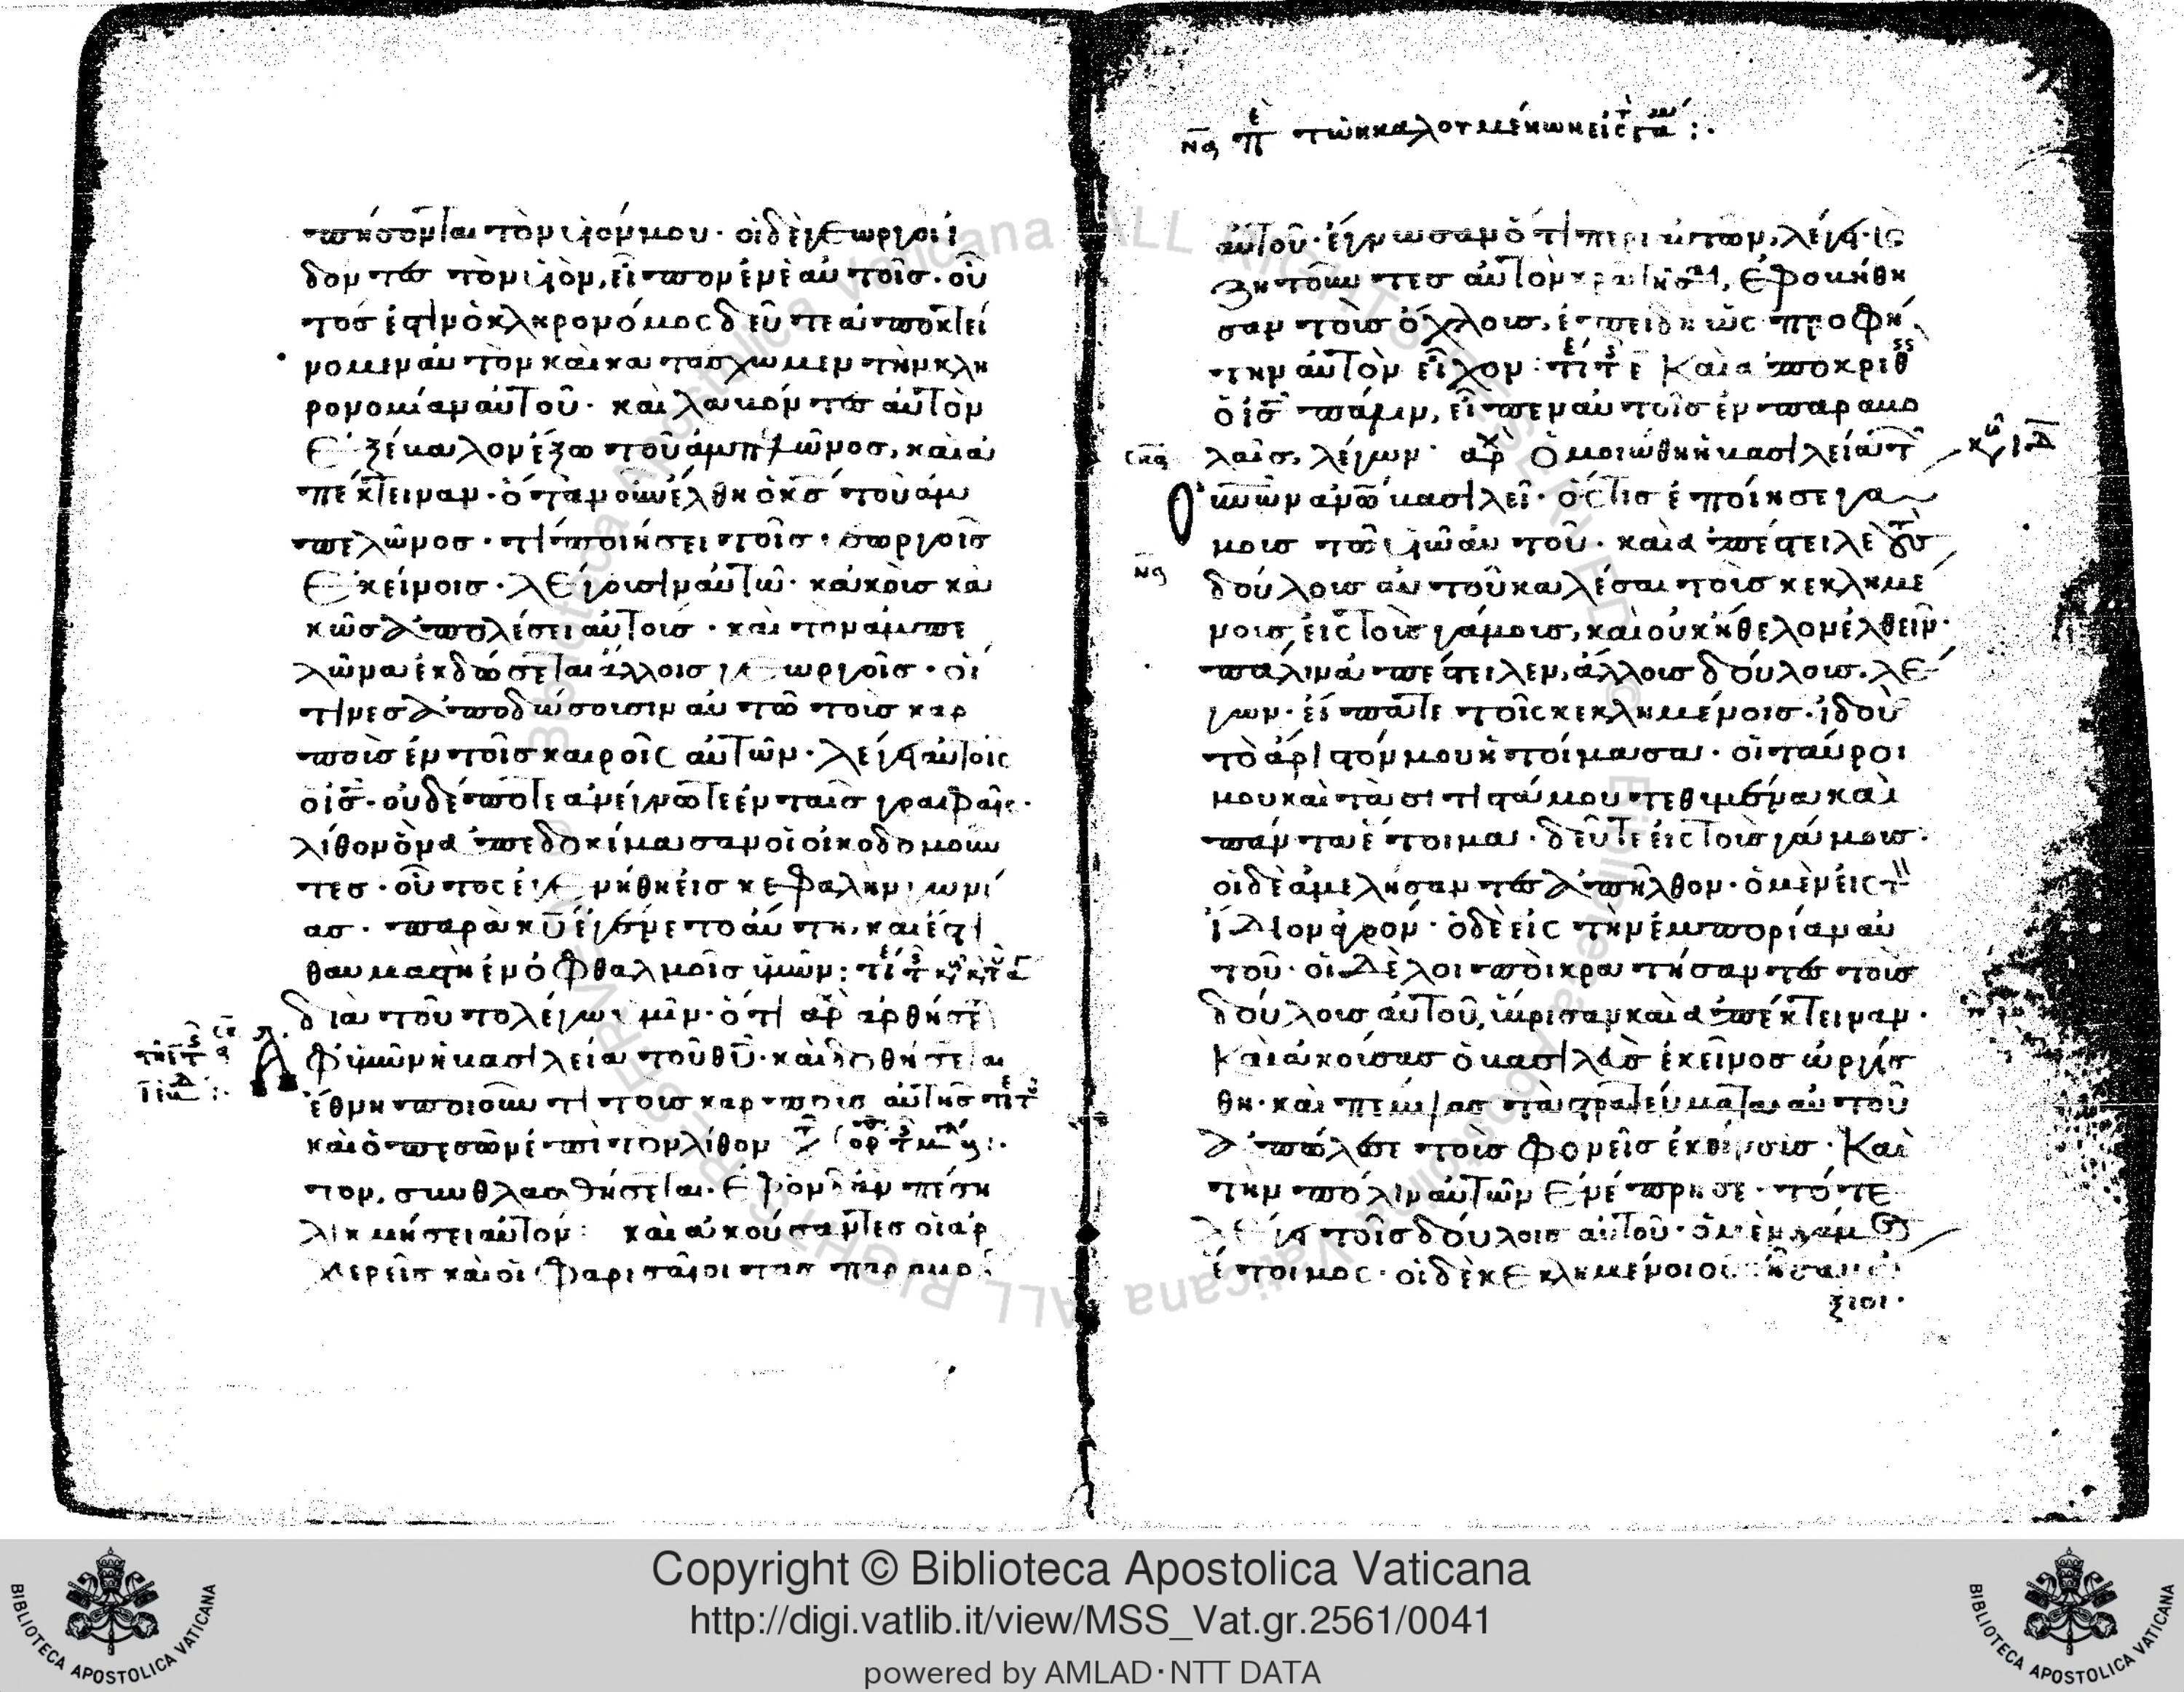 πήσονται τὸν υἱόν μου· οἱ δὲ γεωργοὶ ἰ
δόντες τὸν υἱὸν, εἶπον ἐν ἑαυτοῖς· οὗ
τός ἐστιν ὁ κληρονόμος δεῦτε ἀποκτεί
νομεν αὐτὸν καὶ κατάσχωμεν τὴν κλη
ρονομίαν αὐτοῦ· καὶ λαβόντες αὐτὸν
ἐξέβαλον ἔξω τοῦ ἀμπελῶνος, καὶ ἀ
πέκτειναν· ὅταν οὖν ἔλθη ὁ κ̅ς̅ τοῦ ἀμ
πελῶνος· τί ποιήσει τοῖς γεωργοῖς
ἐκείνοις· λέγουσιν αὐτῶ· κακοὺς κα
κῶς ἀπολέσει αὐτοὺς· καὶ τὸν ἀμπε
λῶνα ἐκδώσεται ἄλλοις γεωργοῖς· οἵ
τινες ἀποδώσουσιν αὐτῶ τοὺς καρ
ποὺς ἐν τοῖς καιροῖς αὐτῶν· λέγει αὐτοῖς
ὁ ι̅ς̅· οὐδέποτε ἀνέγνωτε ἐν ταῖς γραφαῖς·
λίθον ὃν ἀπεδοκίμασαν οἱ οἰκοδομοῦν
τες· οὗτος ἐγενήθη εἰς κεφαλὴν γωνί
ας· παρὰ κ̅υ̅ ἐγένετο αὕτη, καὶ ἔστι
θαυμαστὴ ἐν ὀφθαλμοῖς ὑμῶν:
διὰ τοῦτο λέγω ὑμῖν· ὅτι ἀρθήσεται
ἀφ' ὑμῶν ἡ βασιλεία τοῦ θ̅υ̅· καὶ δοθήσεται
ἔθνη ποιοῦντι τοὺς καρποὺς αὐτῆς
καὶ ὁ πεσὼν ἐπὶ τὸν λίθον
τον, συνθλασθήσεται· ἐφ' ὃν δ' ἂν πέση
λικμήσει αὐτόν: καὶ ἀκούσαντες οἱ ἀρ
χιερεῖς καὶ οἱ φαρισαῖοι τὰς παραβο
ν̅α̅ π̅ε̅ τῶν καλουμένων εἰς τ γα :·
αὐτοῦ· ἔγνωσαν ὅτι περὶ αὐτῶν λέγει· κ̅
ζητοῦντες αὐτὸν κρατῆσαι, ἐφοβήθη
σαν τοὺς ὄχλους, ἐπειδὴ ὡς προφή
την αὐτὸν εἶχον: Καὶ ἀποκριθ
ὁ ι̅ς̅ πάλιν, εἶπεν αὐτοῖς ἐν παραβο
λαῖς, λέγων· ἀρχ ὁμοιώθη ἡ βασιλεία τ
οὐνῶν ἀνω βασιλεῖ· ὅστις ἐποίησε γά
μους τῶ υἱῶ αὐτοῦ· καὶ ἀπέστειλε τοὺς
δούλους αὐτοῦ καλέσαι τοὺς κεκλημέ
νους εἰς τοὺς γάμους, καὶ οὐκ ἤθελον ἐλθεῖν·
πάλιν ἀπέστειλεν, ἄλλους δούλους. λέ
γων· εἴπατε τοῖς κεκλημένοις· ἰδοὺ
τὸ ἄριστόν μου ἡτοίμασα· οἱ ταῦροι
μου καὶ τὰ σιτιστά μου τεθυμένα καὶ
πάντα ἕτοιμα· δεῦτε εἰς τοὺς γάμους·
οἱ δὲ ἀμελήσαντες ἀπῆλθον· ὁ μὲν εἰς τ
ἴδιον ἀγρόν· ὁ δὲ εἰς τὴν ἐμπορίαν αὐ
τοῦ· οἱ δὲ λοιποὶ κρατήσαντες τοὺς
δούλους αὐτοῦ, ὕβρισαν καὶ ἀπέκτειναν·
Καὶ ἀκούσας ὁ βασιλεὺς ἐκεῖνος ὠργίσ
θη· καὶ πέμψας τὰ στρατεύματα αὐτοῦ
ἀπώλεσε τοὺς φονεῖς ἐκείνους· Καὶ
τὴν πόλιν αὐτῶν ἐνέπρησε· τότε
λέγει τοῖς δούλοις αὐτοῦ· ὁ μὲν γάμος
ἕτοιμος· οἱ δὲ κεκλημένοι οὐκ ἦσαν ἄ
ξιοι·
Copyright © Biblioteca Apostolica Vaticana
http://digi.vatlib.it/view/MSS_Vat.gr.2561/0041
powered by AMLAD·NTT DATA
BIBLIOTECA APOSTOLICA VATICANA
BIBLIOTECA APOSTOLICA VATICANA